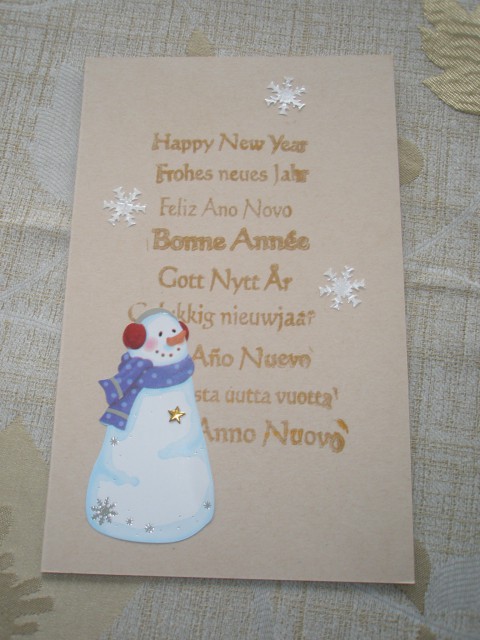 Happy New Year
Frohes neues Jahr
Feliz Ano Novo
Bonne Année
Gott Nytt År
nieuwjaar
Año Nuevo
uutta vuotta
Anno Nuovo